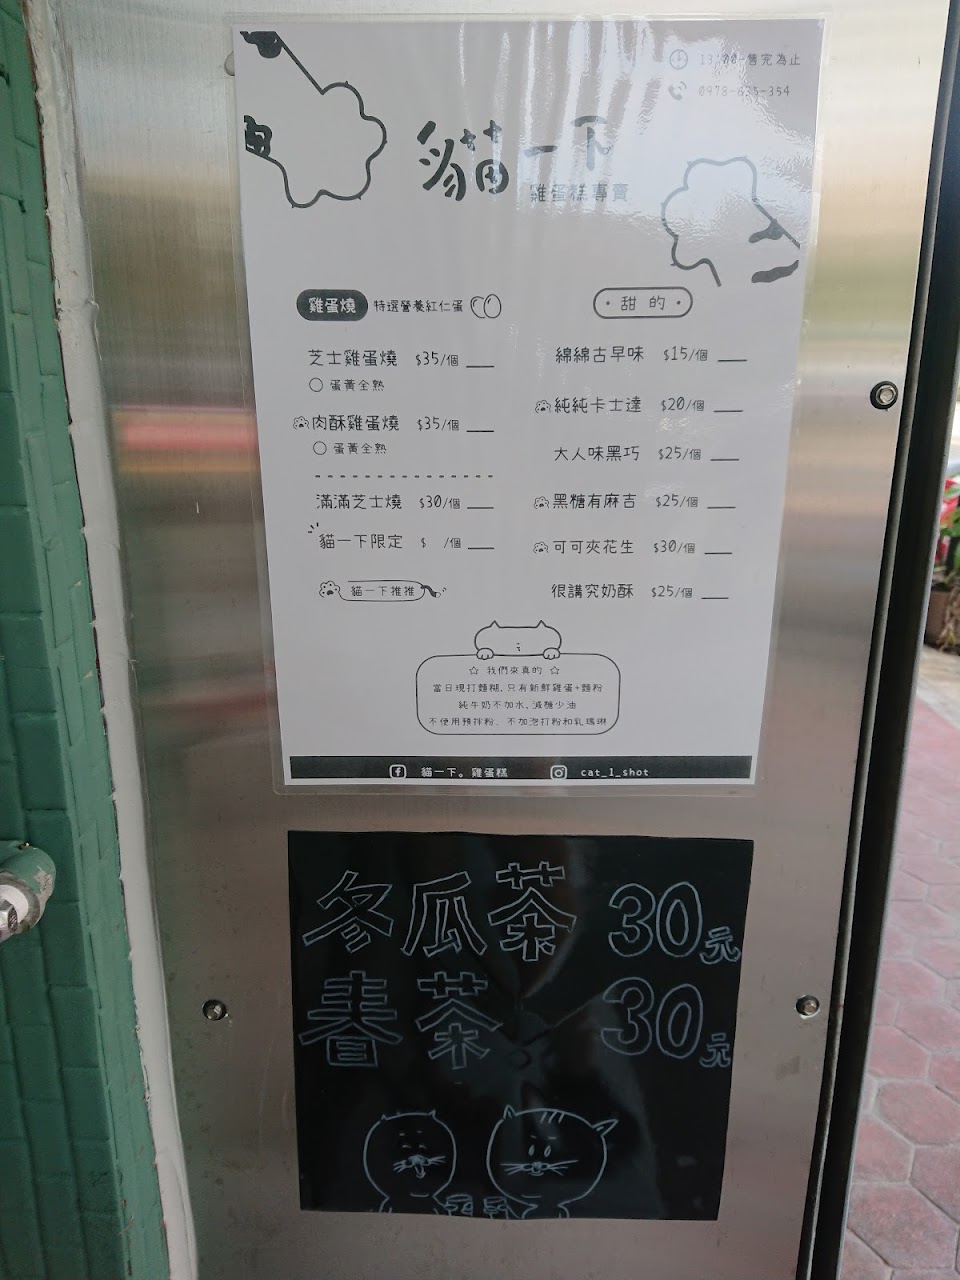 13:00-售完為止
0978-635-354
貓一下
雞蛋糕專賣
雞蛋燒 特選營養紅仁蛋
芝士雞蛋燒 $35/個
蛋黃全熟
肉酥雞蛋燒 $35/個
蛋黃全熟
滿滿芝士燒 $30/個
貓一下限定 $ /個
貓一下推推
甜的
綿綿古早味 $15/個
純純卡士達 $20/個
大人味黑巧 $25/個
黑糖有麻吉 $25/個
可可夾花生 $30/個
很講究奶酥 $25/個
☆ 我們來真的 ☆
當日現打麵糊、只有新鮮雞蛋+麵粉
純牛奶不加水、減糖少油
不使用預拌粉、不加泡打粉和乳瑪琳
貓一下。雞蛋糕 cat_1_shot
冬瓜茶 30元
春茶 30元